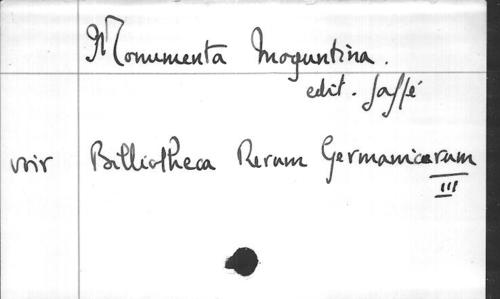 Monumenta Moguntina.
edit. Jaffé
voir Bibliotheca Rerum Germanicarum
III